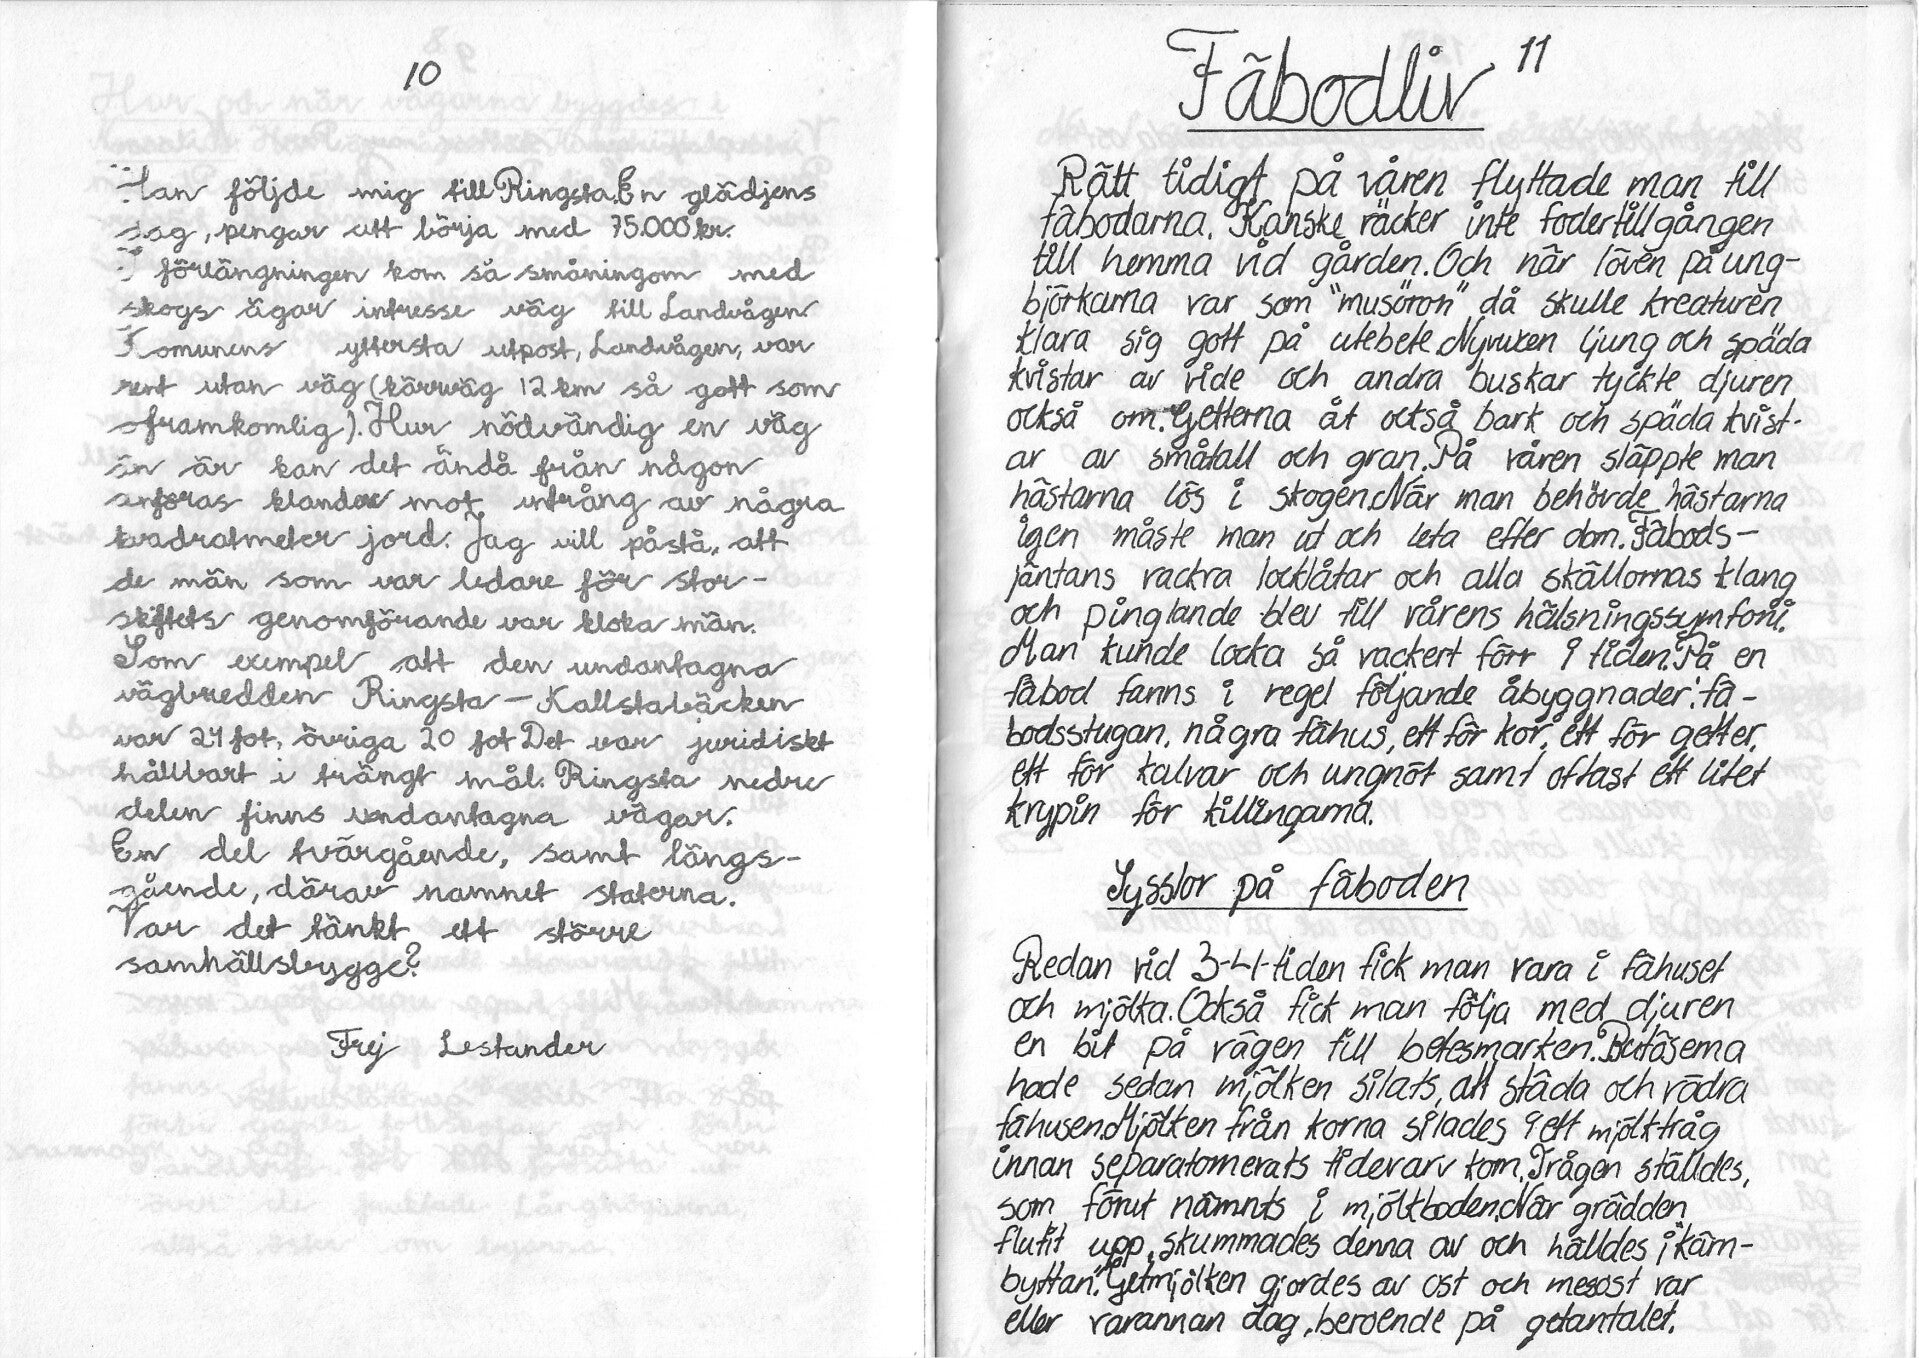 10
Han följde mig till Ringsta. En glädjens
dag, pengar att börja med 75.000 kr.
I förlängningen kom så småningom med
skogs ägar intresse väg till Landvågen
Komunens yttersta utpost, Landvågen, var
rent utan väg (kärrväg 12 km så gott som
oframkomlig). Hur nödvändig en väg
än är kan det ändå från någon
anföras klander mot intrång av några
kvadratmeter jord. Jag vill påstå, att
de män som var ledare för stor-
skiftets genomförande var kloka män.
Som exempel att den undantagna
vägbredden Ringsta – Kallstabäcken
var 24 fot, övriga 20 fot Det var juridiskt
hållbart i trångt mål. Ringsta nedre
delen finns undantagna vägar.
En del tvärgående, samt längs-
gående, därav namnet staterna.
Var det tänkt ett större
samhällsbygge?
Frej Lestander
Fäbodliv 11
Rätt tidigt på våren flyttade man till
fäbodarna. Kanske räcker inte fodertillgången
till hemma vid gården. Och när löven på ung-
björkarna var som "musöron" då skulle kreaturen
klara sig gott på utebete. Nyvuxen ljung och späda
kvistar av vide och andra buskar tyckte djuren
också om. Getterna åt också bark och späda kvist-
ar av småtall och gran. På våren släppte man
hästarna lös i skogen. När man behövde hästarna
igen måste man ut och leta efter dom. Fäbods-
jäntans vackra locklåtar och alla skällornas klang
och pinglande blev till vårens hälsningssymfoni.
Man kunde locka så vackert förr i tiden. På en
fäbod fanns i regel följande åbyggnader: fä-
bodsstugan, några fähus, ett för kor, ett för getter,
ett för kalvar och ungnöt samt oftast ett litet
krypin för killingarna.
Sysslor på fäboden
Redan vid 3-4-tiden fick man vara i fähuset
och mjölka. Också fick man följa med djuren
en bit på vägen till betesmarken. Butöserna
hade sedan mjölken silats, att städa och vädra
fähusen. Mjölken från korna silades i ett mjölktråg
innan separatornerats tidevarv kom. Trågen ställdes,
som förut nämnts i mjölkboden. När grädden
flutit upp, skummades denna av och hälldes i "kärn-
byttan". Getmjölken gjordes av ost och mesost var
eller varannan dag, beroende på getantalet.